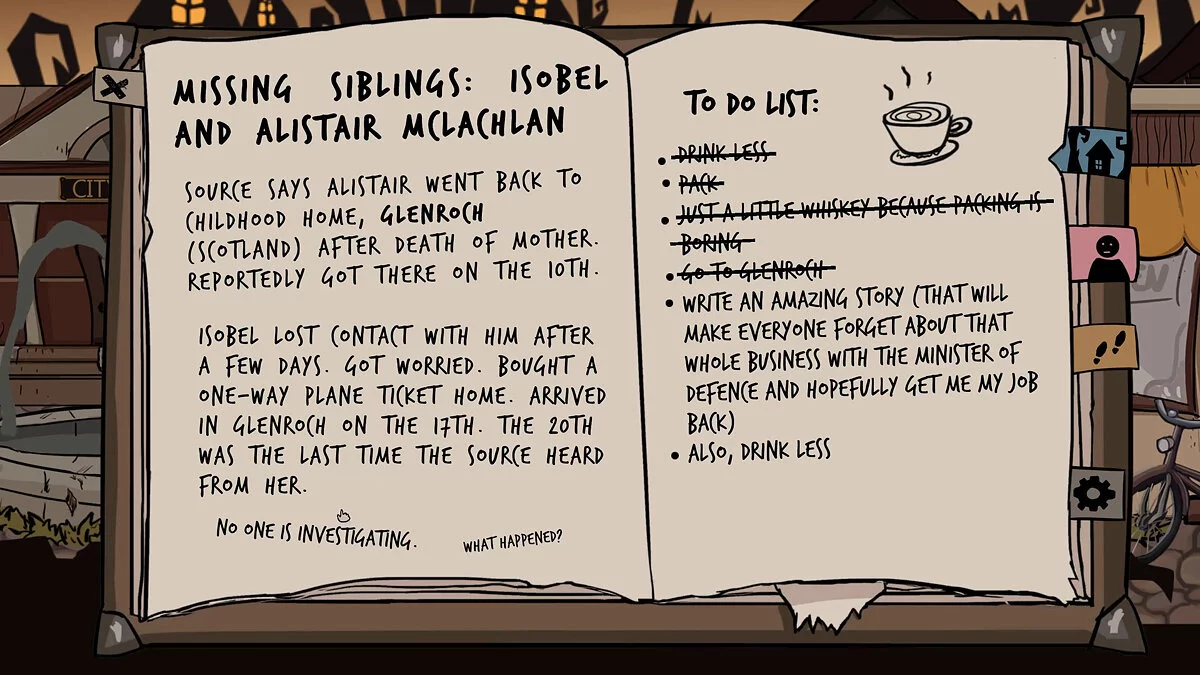 MISSING SIBLINGS: ISOBEL
AND ALISTAIR MCLACHLAN
SOURCE SAYS ALISTAIR WENT BACK TO
CHILDHOOD HOME, GLENROCH
(SCOTLAND) AFTER DEATH OF MOTHER.
REPORTEDLY GOT THERE ON THE 10TH.
ISOBEL LOST CONTACT WITH HIM AFTER
A FEW DAYS. GOT WORRIED. BOUGHT A
ONE-WAY PLANE TICKET HOME. ARRIVED
IN GLENROCH ON THE 17TH. THE 20TH
WAS THE LAST TIME THE SOURCE HEARD
FROM HER.
NO ONE IS INVESTIGATING.
WHAT HAPPENED?
TO DO LIST:
• DRINK LESS
• PACK
• JUST A LITTLE WHISKEY BECAUSE PACKING IS
BORING
• GO TO GLENROCH
• WRITE AN AMAZING STORY (THAT WILL
MAKE EVERYONE FORGET ABOUT THAT
WHOLE BUSINESS WITH THE MINISTER OF
DEFENCE AND HOPEFULLY GET ME MY JOB
BACK)
• ALSO, DRINK LESS
CIT